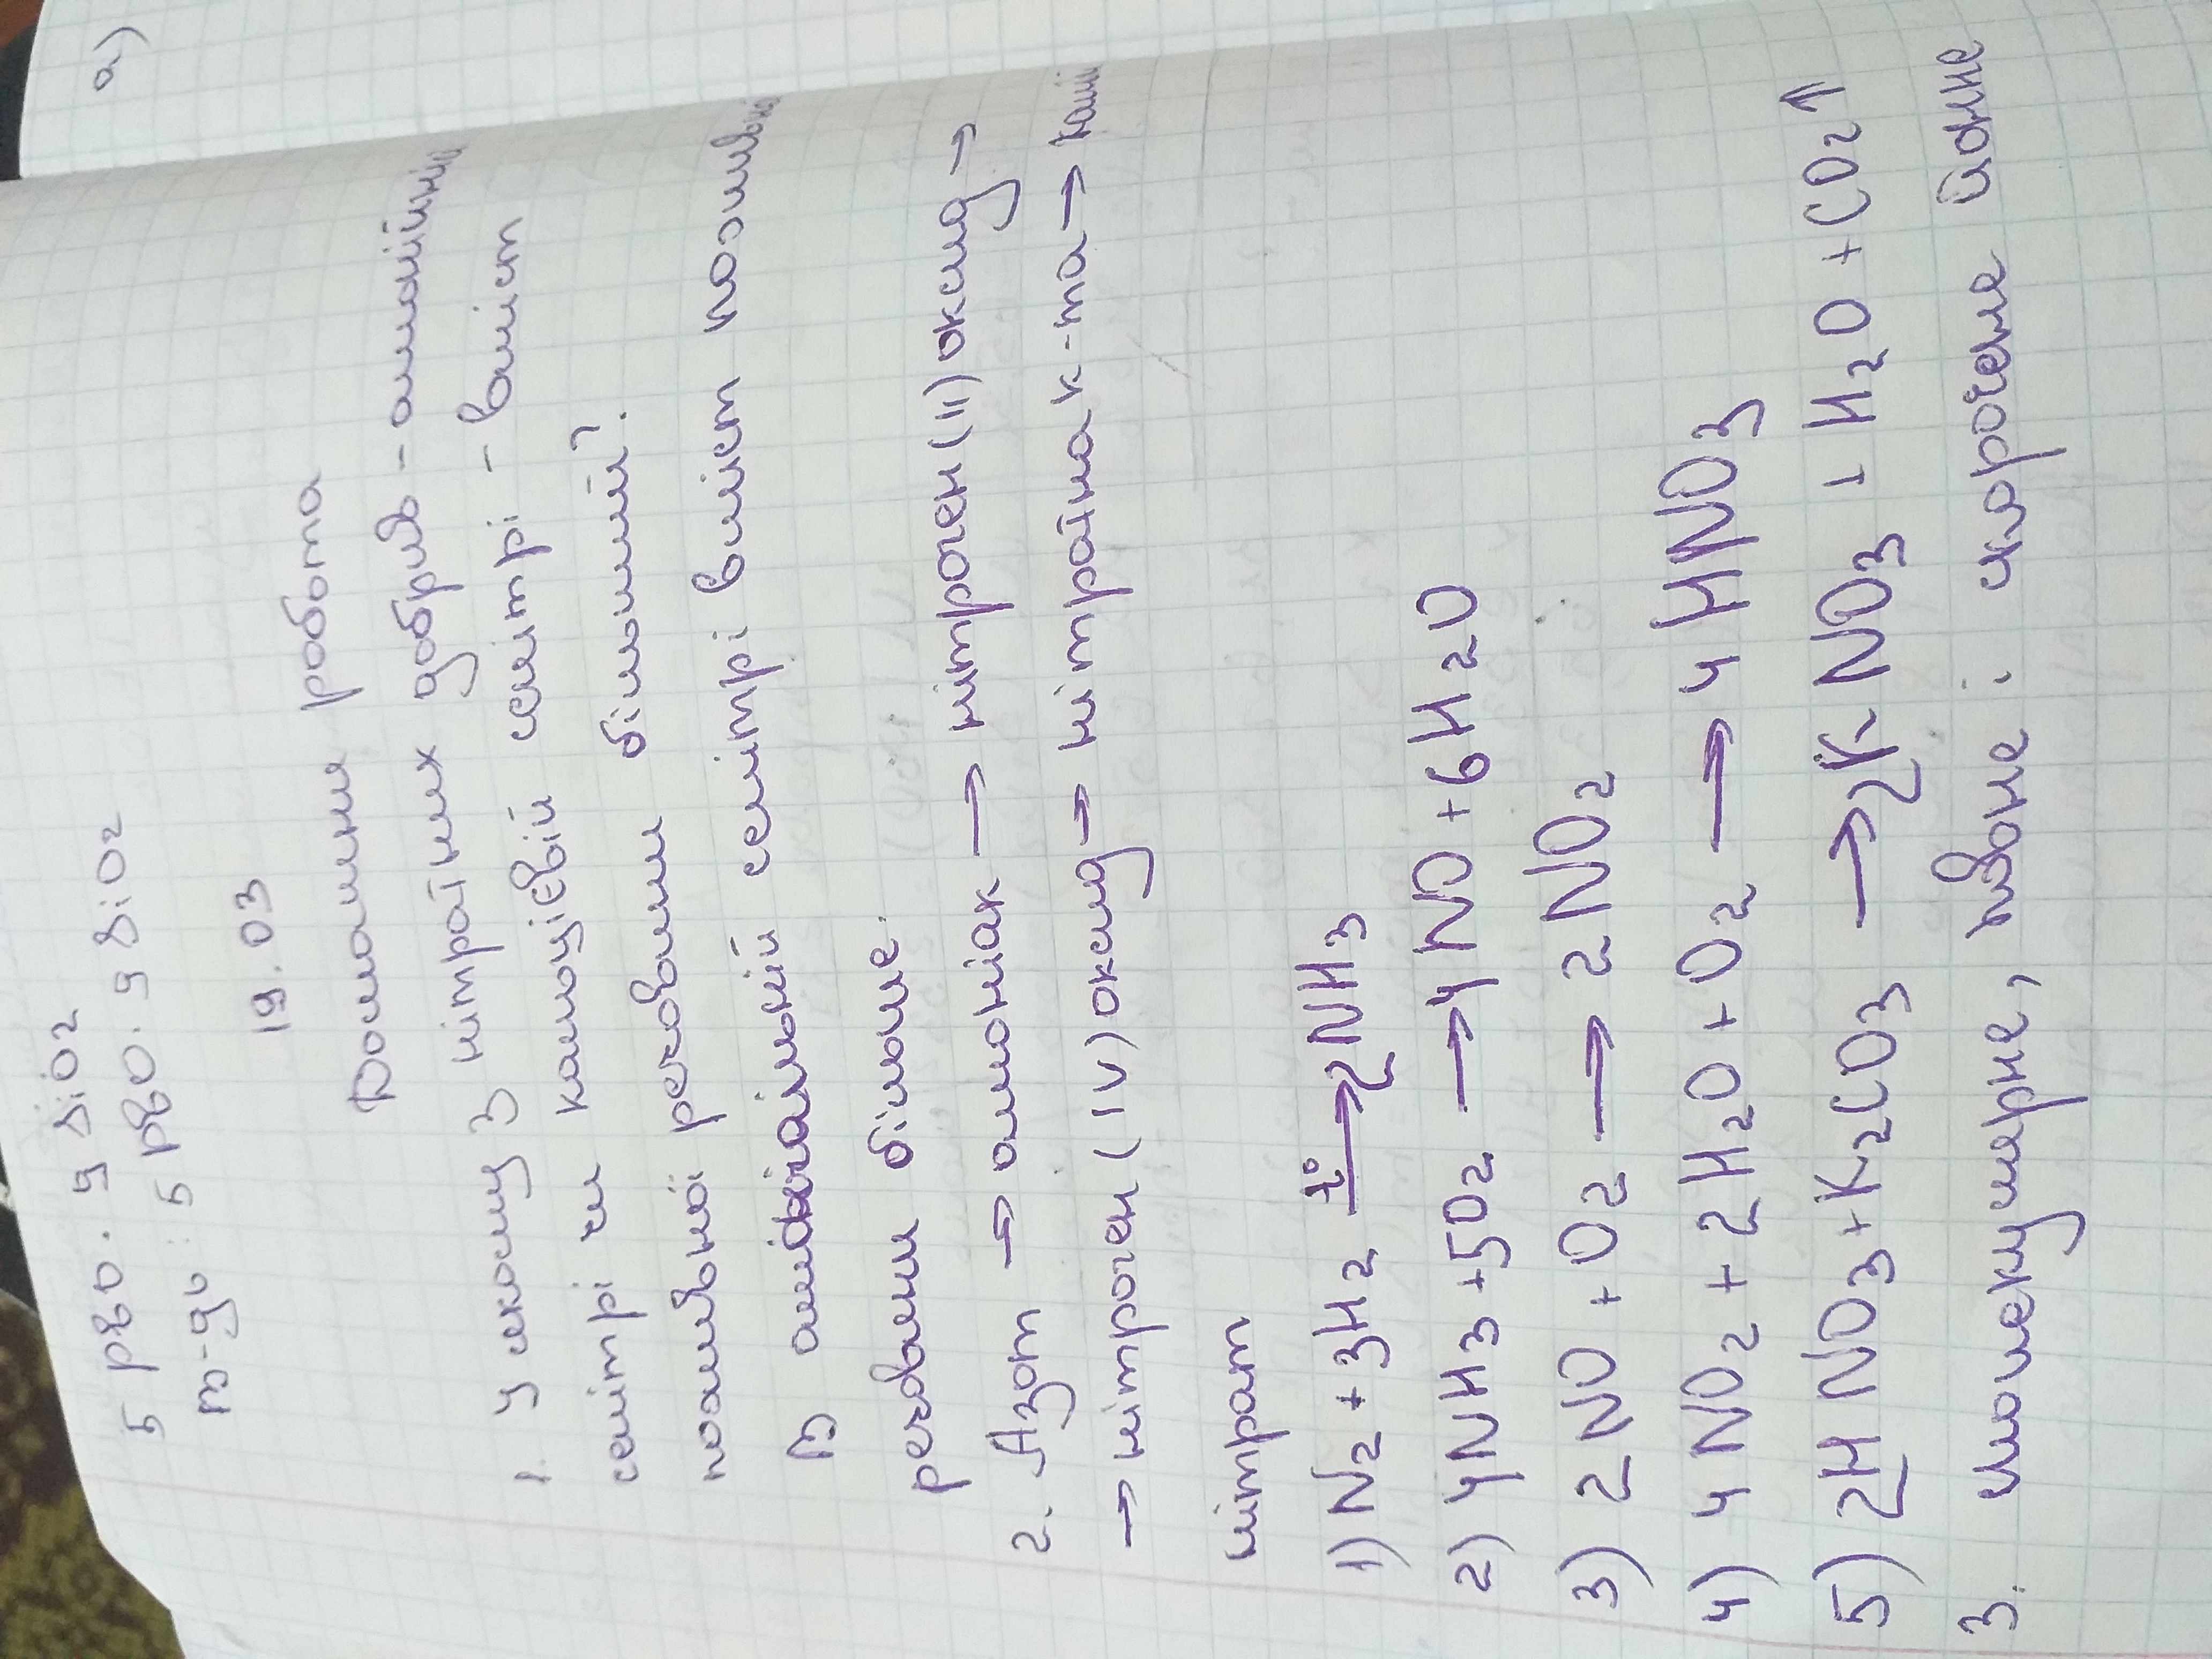 5 PbO . 9 SiO2
m-ду: 5 PbO . 9 SiO2
19.03
Домашня робота
1. У якому з нітратних добрив - амонійній
селітрі чи кальцієвій селітрі - вміст
поживної речовини більший?
В аміачній селітрі вміст поживної
речовини більше.
2. Азот → амоніак → нітроген (II) оксид →
→ нітроген (IV) оксид → нітратна к-та → калій
нітрат
1) N2 + 3H2 t° → 2NH3
2) 4NH3 + 5O2 → 4NO + 6H2O
3) 2NO + O2 → 2NO2
4) 4NO2 + 2H2O + O2 → 4HNO3
5) 2HNO3 + K2CO3 → 2KNO3 + H2O + CO2↑
3. молекулярне, повне і скорочене йонне
а)